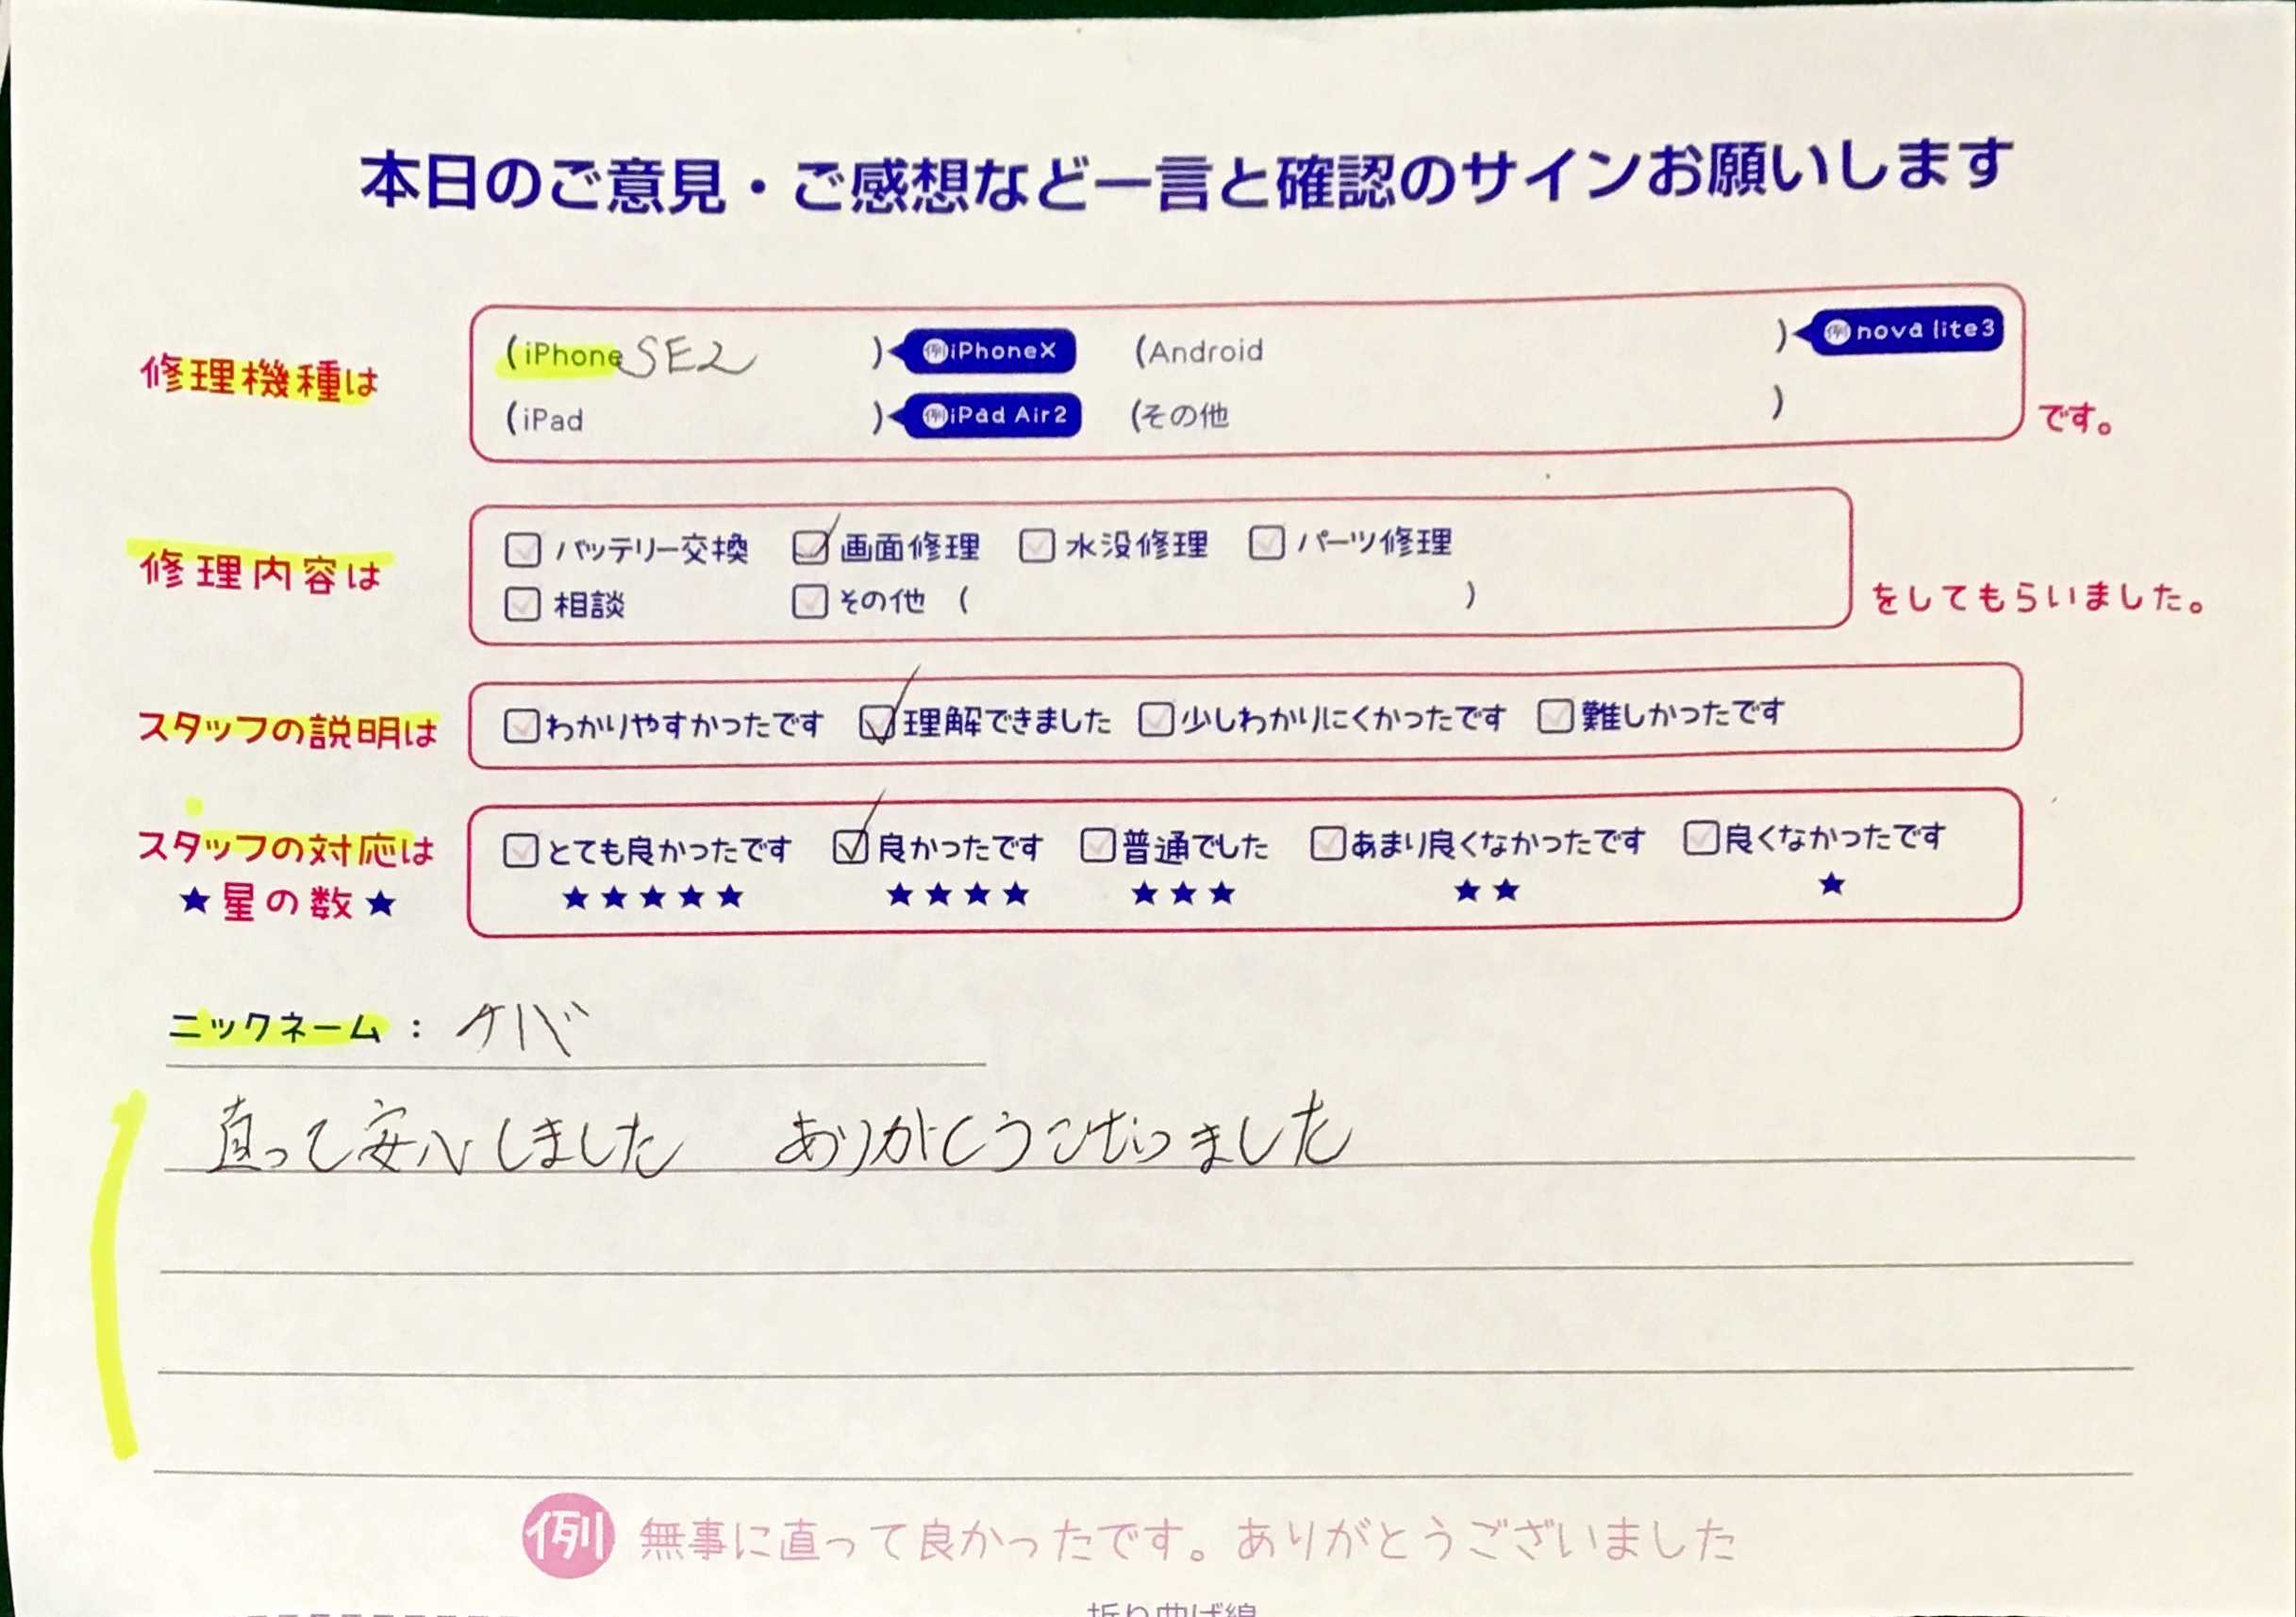 本日のご意見・ご感想など一言と確認のサインお願いします
修理機種は
(iPhone SE2 ) 例iPhoneX (Android ) 例nova lite3
(iPad ) 例iPad Air2 (その他 ) です。
修理内容は
バッテリー交換 画面修理 水没修理 パーツ修理
相談 その他 ( ) をしてもらいました。
スタッフの説明は わかりやすかったです 理解できました 少しわかりにくかったです 難しかったです
スタッフの対応は とても良かったです 良かったです 普通でした あまり良くなかったです 良くなかったです
★星の数★ ★★★★★ ★★★★ ★★★ ★★ ★
ニックネーム : ケバ
直って安心しました ありがとうございました
例 無事に直って良かったです。ありがとうございました
折り曲げ線